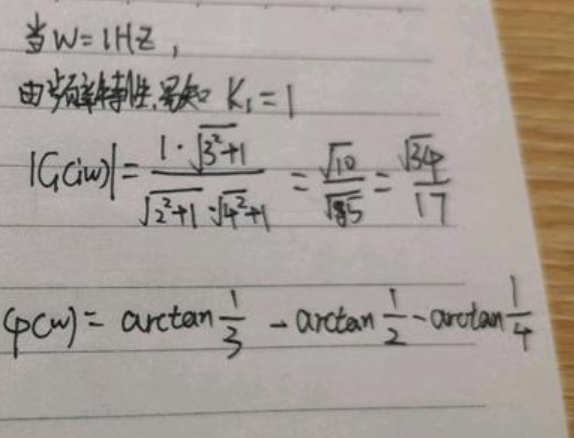 当 W=1HZ,
由频率特性,易知 K₁=1
|G(iw)| = 1·√(3²+1) / √(2²+1)·√(4²+1) = √10/√85 = √34/17
φ(w) = arctan 1/3 - arctan 1/2 - arctan 1/4